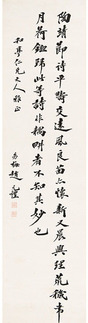 陶靖節詩平疇交遠風良苗亦懷新又晨興理荒穢帶
月荷鋤歸此等詩非耦耕者不知其妙也
和亭仁兄大人雅正
幼梅趙元禮